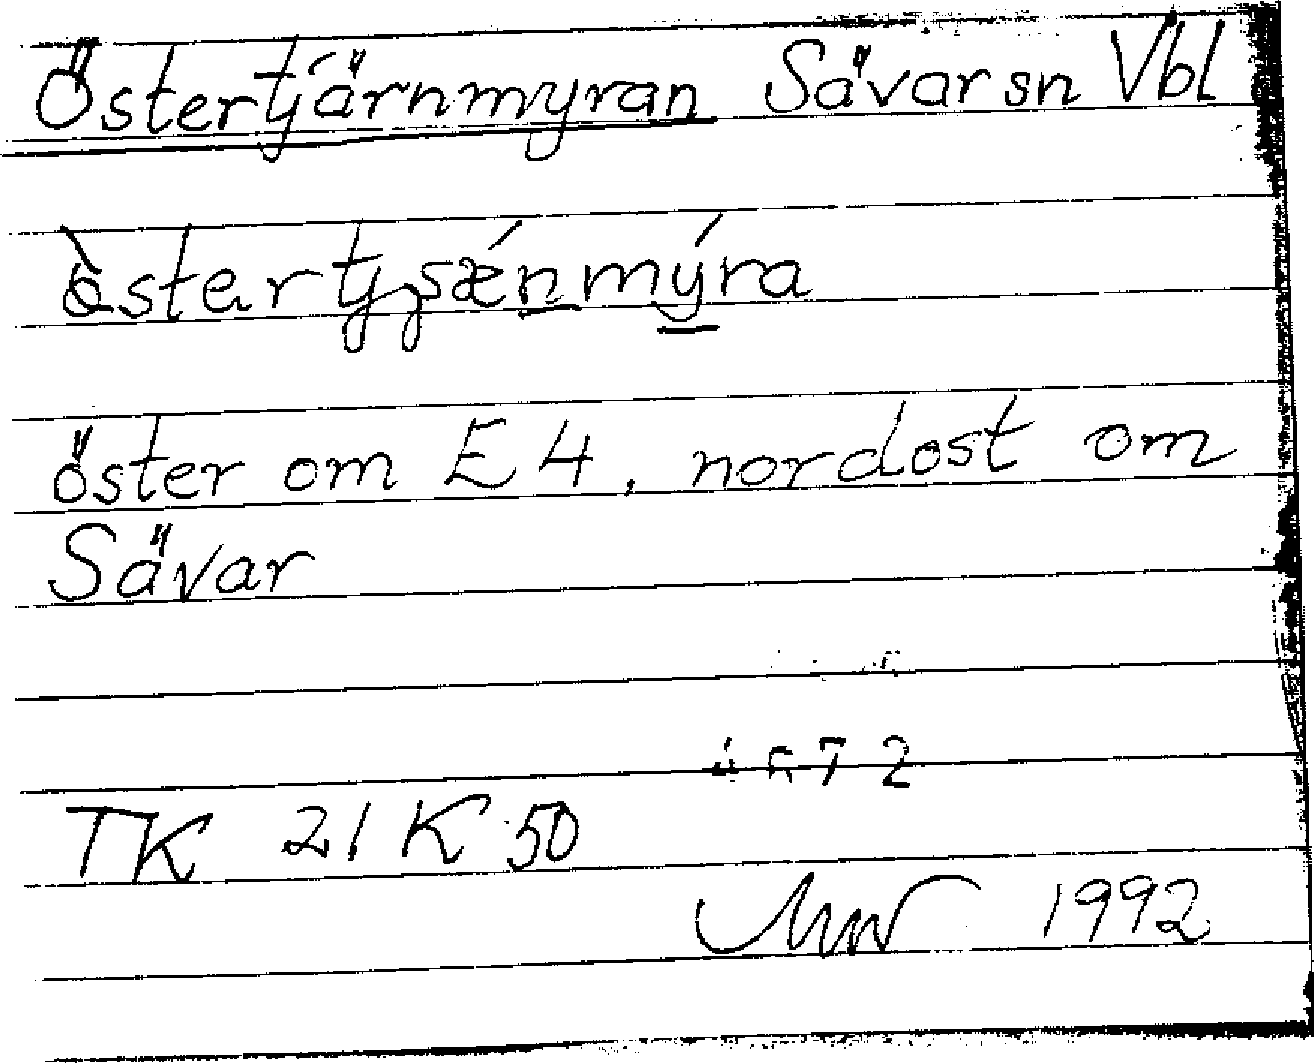 Östertjärnmyran Sävar sn Vbl
öster om E4, nordost om
Sävar
TK 21K 50
1992